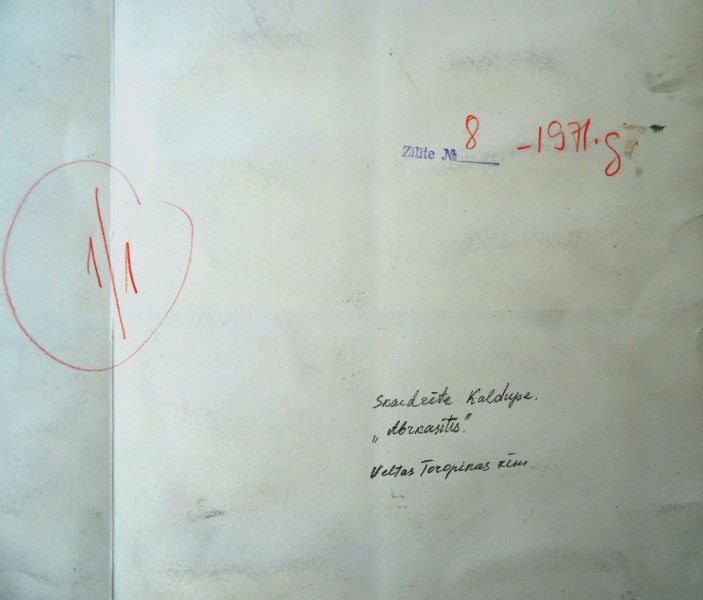 Zīlīte № 8 -1971.g
1/1
Skaidrīte Kaldupe.
„Abrkasītis."
Veltas Toropinas zīm.